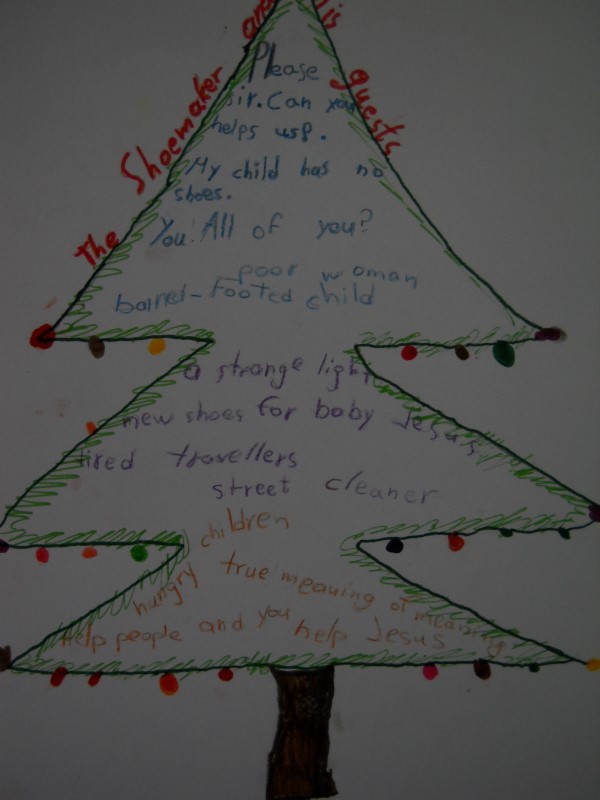 The Shoemaker and his guests
Please
sir. Can you
helps us?.
My child has no
shoes.
You. All of you?
poor woman
baired-footed child
a strange light
new shoes for baby Jesus
tired travellers
street cleaner
children
hungry
true meaning of meaning
Help people and you help Jesus